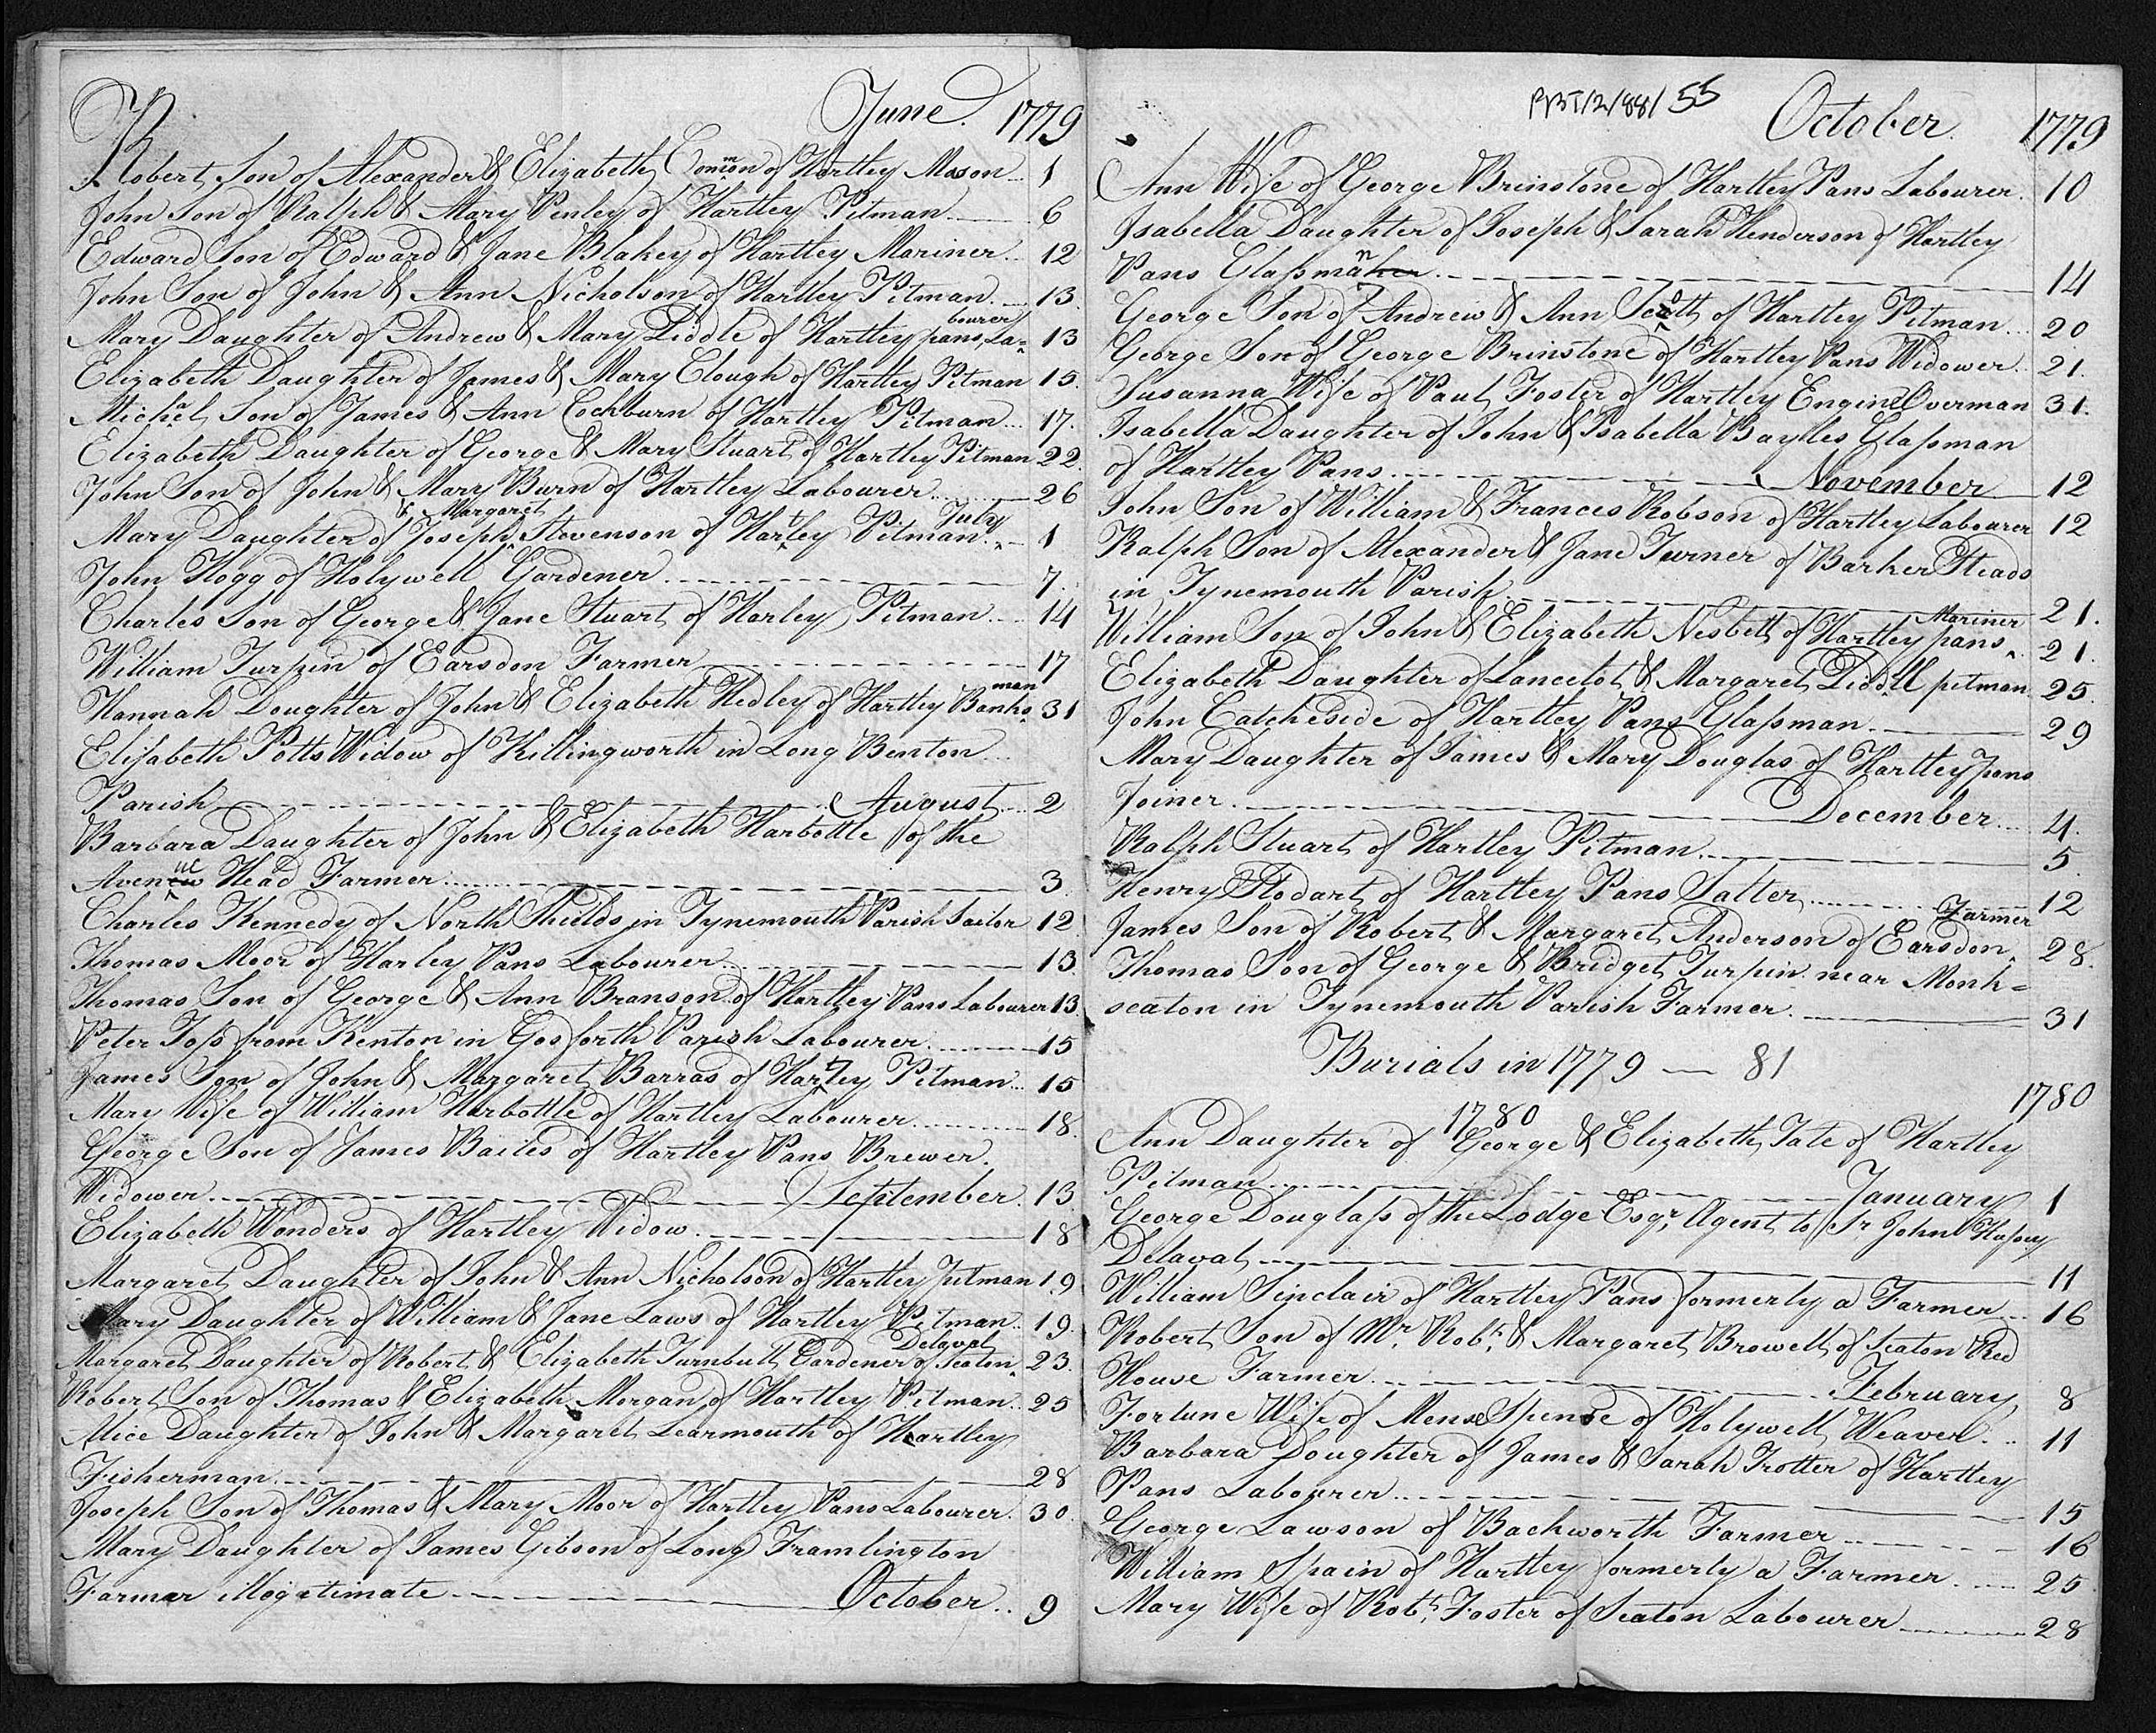 June 1779
Robert Son of Alexander & Elizabeth Common of Hartley Mason 1
John Son of Ralph & Mary Penley of Hartley Pitman 6
Edward Son of Edward & Jane Blakey of Hartley Mariner 12
John Son of John & Ann Nicholson of Hartley Pitman 13
Mary Daughter of Andrew & Mary Liddle of Hartley pans, Labourer 13
Elizabeth Daughter of James & Mary Clough of Hartley Pitman 15
Michael Son of James & Ann Cockburn of Hartley Pitman 17
Elizabeth Daughter of George & Mary Stuart of Hartley Pitman 22
John Son of John & Mary Burn of Hartley Labourer 26
Mary Daughter of Joseph & Margaret Stevenson of Hartley Pitman July 1
John Hogg of Holywell Gardener 7
Charles Son of George & Jane Stuart of Harley Pitman 14
William Turpin of Earsdon Farmer 17
Hannah Daughter of John & Elizabeth Hedley of Hartley Banksman 31
Elisabeth Potts Widow of Killingworth in Long Benton
Parish August 2
Barbara Daughter of John & Elizabeth Harbottle of the
Avenue Head Farmer 3
Charles Kennedy of North Shields in Tynemouth Parish Sailor 12
Thomas Moor of Harley Pans Labourer 13
Thomas Son of George & Ann Branson of Hartley Pans Labourer 13
Peter Joss from Kenton in Gosforth Parish Labourer 15
James Son of John & Margaret Barras of Hartley Pitman 15
Mary Wife of William Harbottle of Hartley Labourer 18
George Son of James Bailes of Hartley Pans Brewer
Widower September 13
Elizabeth Wonders of Hartley Widow 18
Margaret Daughter of John & Ann Nicholson of Hartley Pitman 19
Mary Daughter of William & Jane Laws of Hartley Pitman 19
Margaret Daughter of Robert & Elizabeth Turnbull Gardener of Seaton Delaval 23
Robert Son of Thomas & Elizabeth Morgan of Hartley Pitman 25
Alice Daughter of John & Margaret Learmouth of Hartley
Fisherman 28
Joseph Son of Thomas & Mary Moor of Hartley Pans Labourer 30
Mary Daughter of James Gibson of Long Framlington
Farmer illegitimate October 9
55
October 1779
Ann Wife of George Brinstone of Hartley Pans Labourer 10
Isabella Daughter of Joseph & Sarah Henderson of Hartley
Pans Glassman 14
George Son of Andrew & Ann Scott of Hartley Pitman 20
George Son of George Brinstone of Hartley Pans Widower 21
Susanna Wife of Paul Foster of Hartley Engine Overman 31
Isabella Daughter of John & Isabella Bayles Glassman
of Hartley Pans November 12
John Son of William & Frances Robson of Hartley Labourer 12
Ralph Son of Alexander & Jane Turner of Barker Steads
in Tynemouth Parish 21
William Son of John & Elizabeth Nesbett of Hartley pans Mariner 21
Elizabeth Daughter of Lancelot & Margaret Liddell pitman 25
John Catcheside of Hartley Pans Glassman 29
Mary Daughter of James & Mary Douglas of Hartley pans
Joiner December 4
Ralph Stuart of Hartley Pitman 5
Henry Stodart of Hartley Pans Salter 12
James Son of Robert & Margaret Anderson of Earsdon Farmer 28
Thomas Son of George & Bridget Turpin near Monk=
seaton in Tynemouth Parish Farmer 31
Burials in 1779 — 81
1780
1780
Ann Daughter of George & Elizabeth Tate of Hartley
Pitman January 1
George Douglass of the Lodge Esqr. Agent to Sr. John Hussey
Delaval 11
William Sinclair of Hartley Pans formerly a Farmer 16
Robert Son of Mr. Robt. & Margaret Browell of Seaton Red
House Farmer February 8
Fortune Wife of Spence of Holywell Weaver 11
Barbara Daughter of James & Sarah Trotter of Hartley
Pans Labourer 15
George Lawson of Backworth Farmer 16
William Spain of Hartley formerly a Farmer 25
Mary Wife of Robt. Foster of Seaton Labourer 28